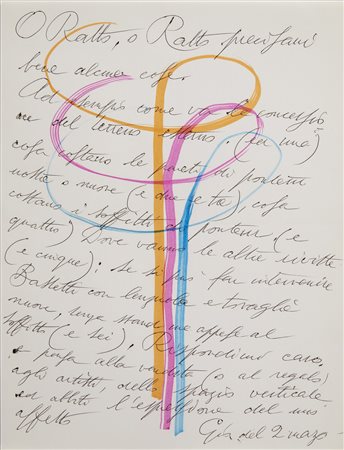 O Ratto, o Ratto precisami
bene alcune cose.
Ad esempio come va la concessio
ne del terreno esterno. (ed una)
cosa costano le pareti di ponteni
vecchie o nuove (e due e tre) cosa
costano i soffitti di ponteni (e
quattro) Dove vanno le altre
(e cinque): se si può far intervenire
Bassetti con lenzuola e tovaglie
nuove, senza stand, ma appese al
soffitto (e sei). Rispondimi caro.
e pensa alla vendita (o al regalo)
agli artisti, dello spazio verticale
ed abbiti l'espressione del mio
affetto
Giò. del 2 marzo